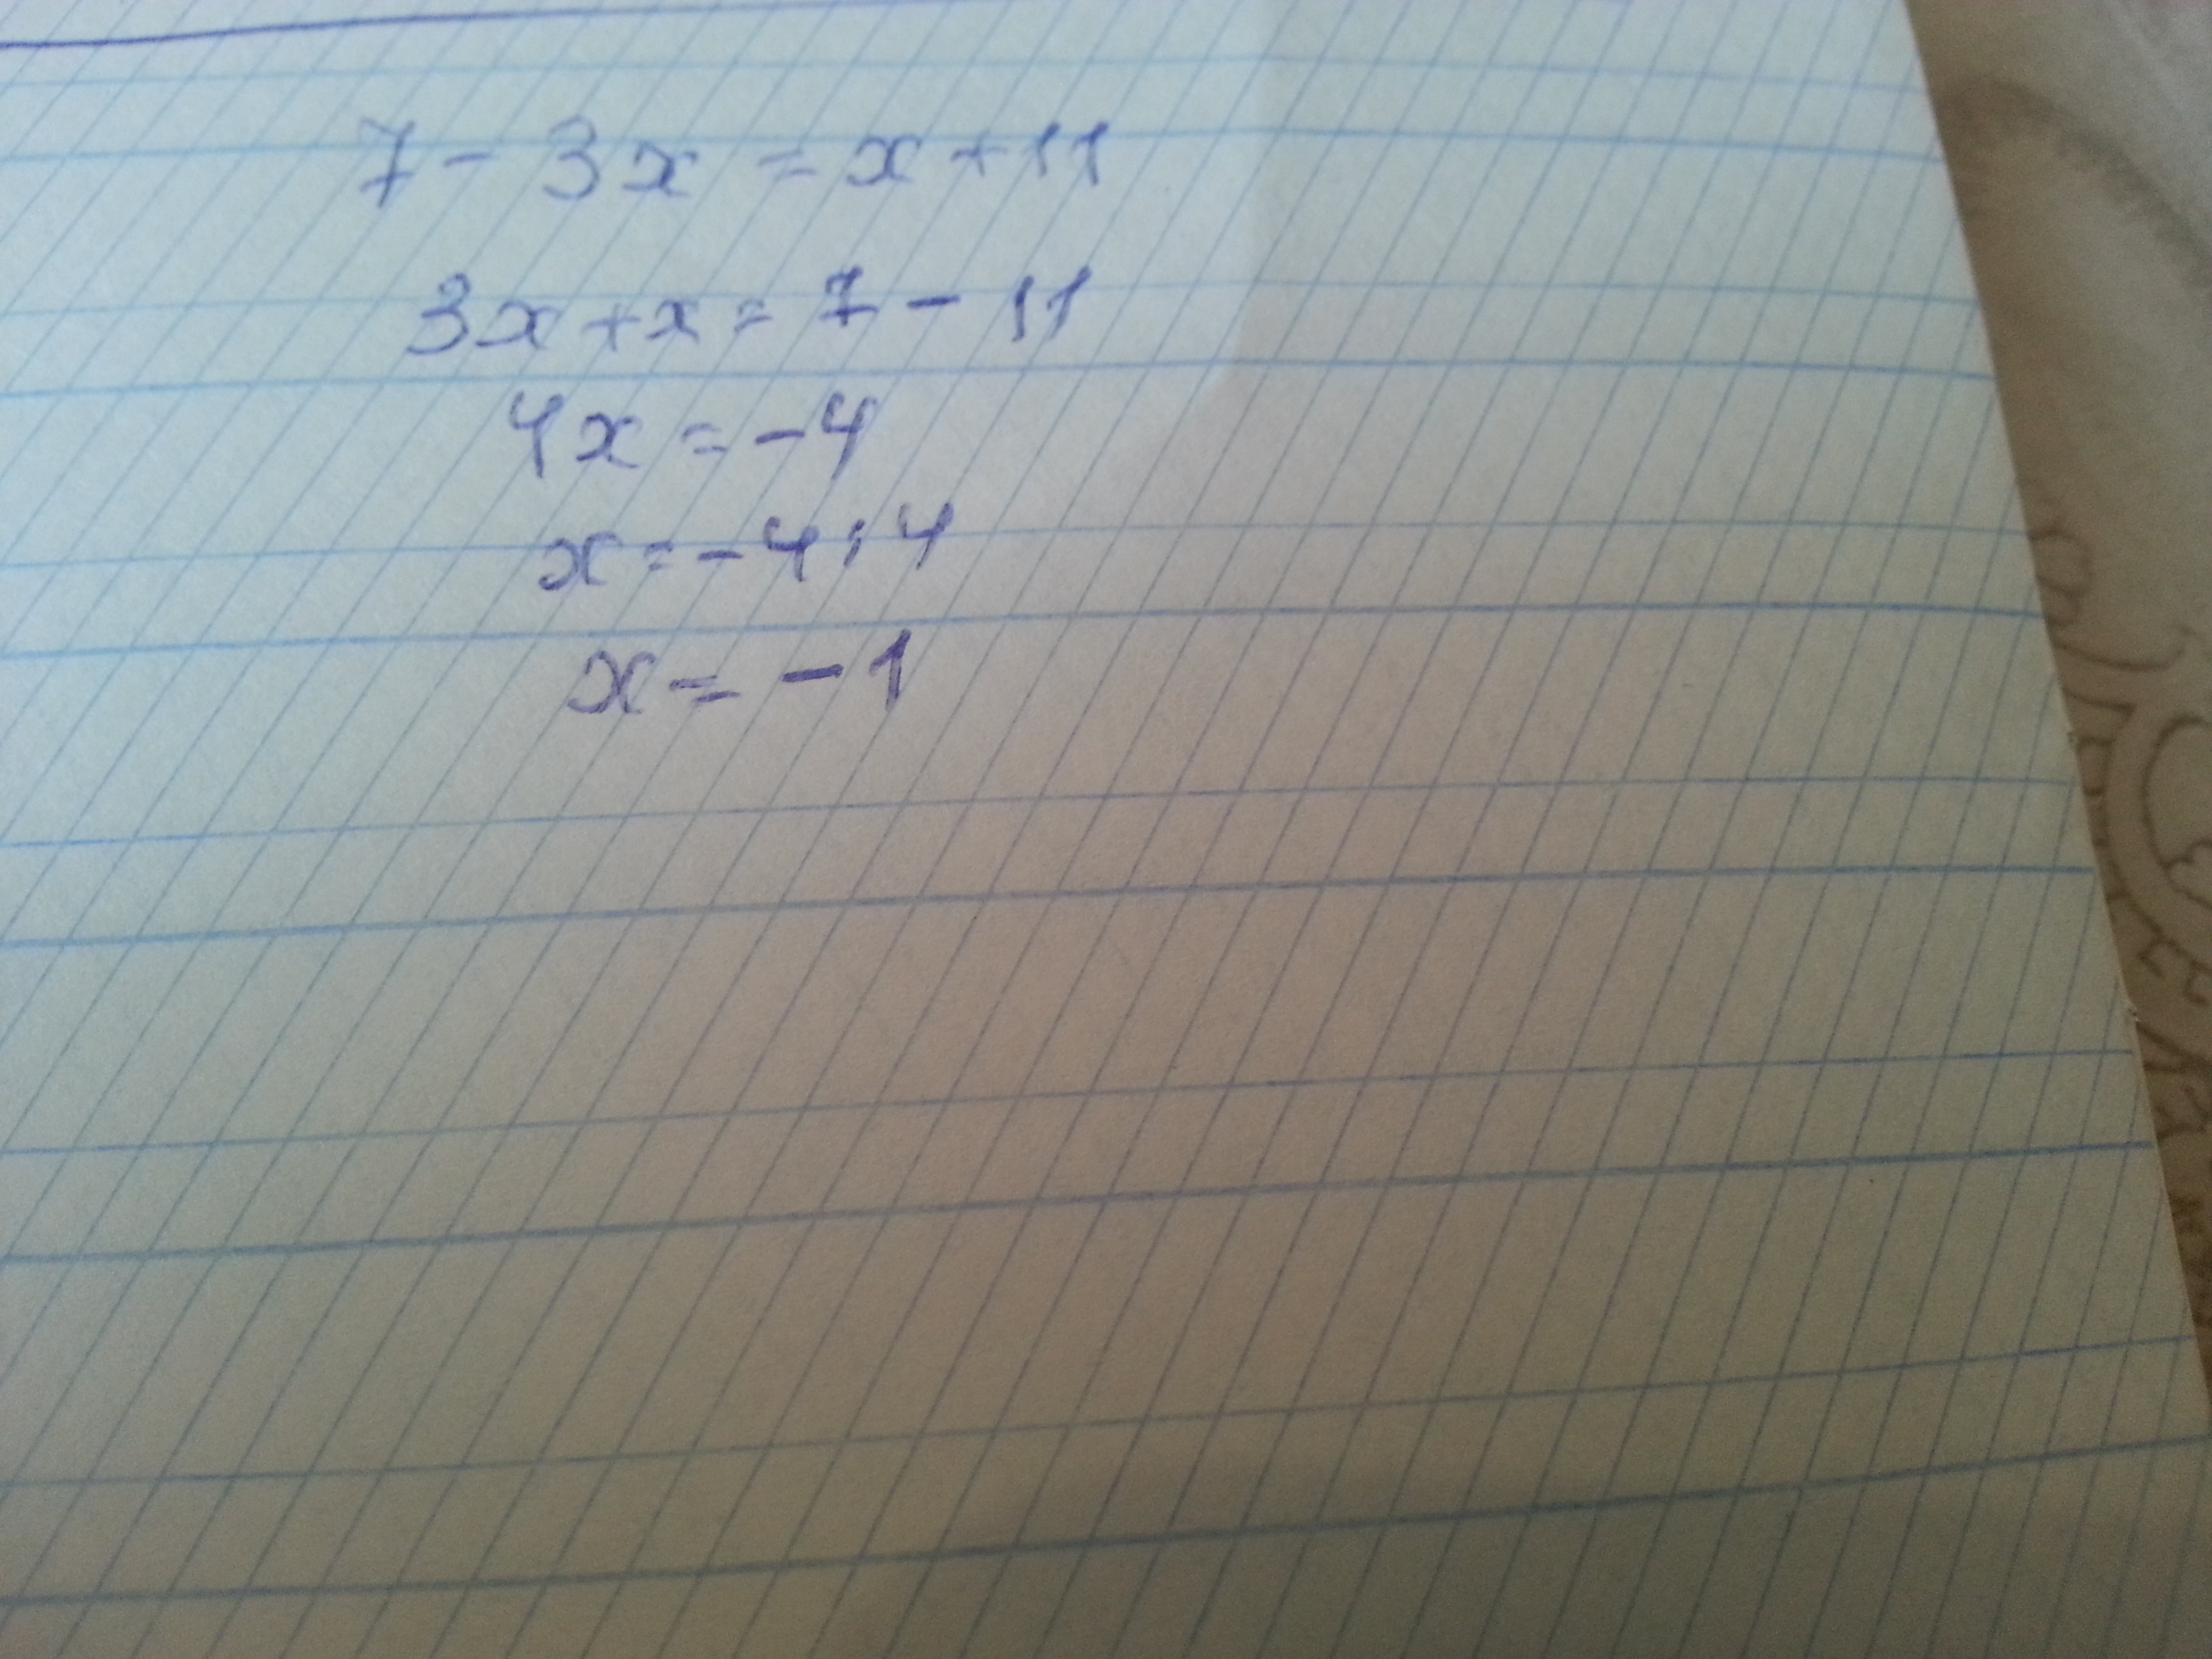 7 - 3x = x + 11
3x + x = 7 - 11
4x = -4
x = -4 : 4
x = -1